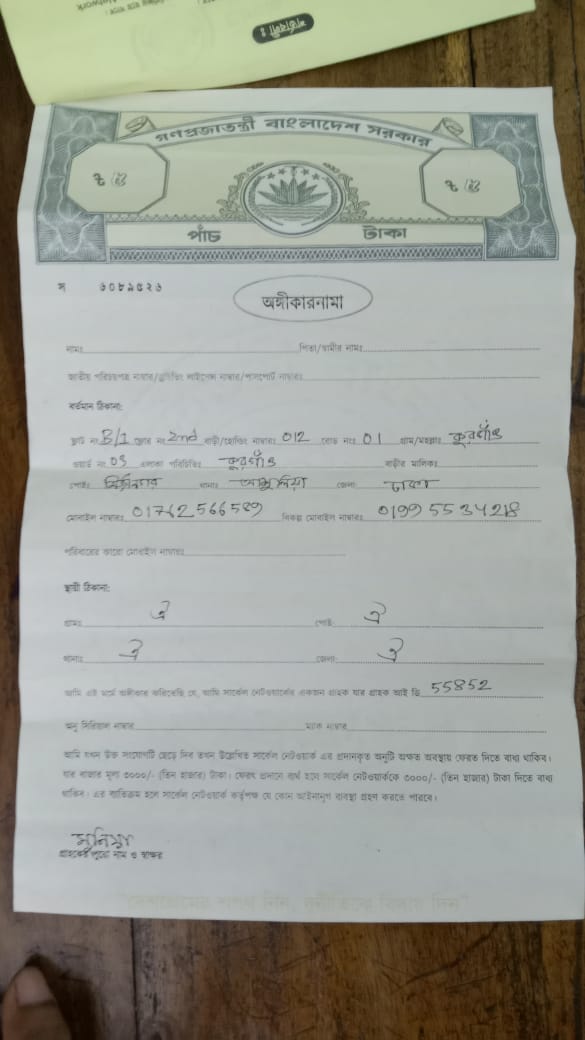 গণপ্রজাতন্ত্রী বাংলাদেশ সরকার
৳ ৫ ৳ ৫
পাঁচ টাকা
স ৬০৮৯৫২৬
অঙ্গীকারনামা
নামঃ পিতা/স্বামীর নামঃ
জাতীয় পরিচয়পত্র নাম্বার/ড্রাইভিং লাইসেন্স নাম্বার/পাসপোর্ট নাম্বারঃ
বর্তমান ঠিকানা:
ফ্লাট নং B/1 ফ্লোর নং 2nd বাড়ী/হোল্ডিং নাম্বারঃ 012 রোড নংঃ 01 গ্রাম/মহল্লাঃ কুরগাঁও
ওয়ার্ড নং এলাকা পরিচিতিঃ কুরগাঁও বাড়ীর মালিকঃ
পোষ্টঃ থানাঃ আশুলিয়া জেলা ঢাকা
মোবাইল নাম্বারঃ 01762566589 বিকল্প মোবাইল নাম্বারঃ
পরিবারের কারো মোবাইল নাম্বারঃ
স্থায়ী ঠিকানা:
গ্রামঃ ঐ পোষ্ট ঐ
থানাঃ ঐ জেলা ঐ
আমি এই মর্মে অঙ্গীকার করিতেছি যে, আমি সার্কেল নেটওয়ার্কের একজন গ্রাহক যার গ্রাহক আই ডি 55852
অনু সিরিয়াল নাম্বার ম্যাক নাম্বার
আমি যখন উক্ত সংযোগটি ছেড়ে দিব তখন উল্লেখিত সার্কেল নেটওয়ার্ক এর প্রদানকৃত অনুটি অক্ষত অবস্থায় ফেরত দিতে বাধ্য থাকিব।
যার বাজার মূল্য ৩০০০/- (তিন হাজার) টাকা। ফেরৎ প্রদানে ব্যর্থ হলে সার্কেল নেটওয়ার্ককে ৩০০০/- (তিন হাজার) টাকা দিতে বাধ্য
থাকিব। এর ব্যতিক্রম হলে সার্কেল নেটওয়ার্ক কর্তৃপক্ষ যে কোন আইনানুগ ব্যবস্থা গ্রহণ করতে পারবে।
মুনিয়া
গ্রাহকের পুরো নাম ও স্বাক্ষর